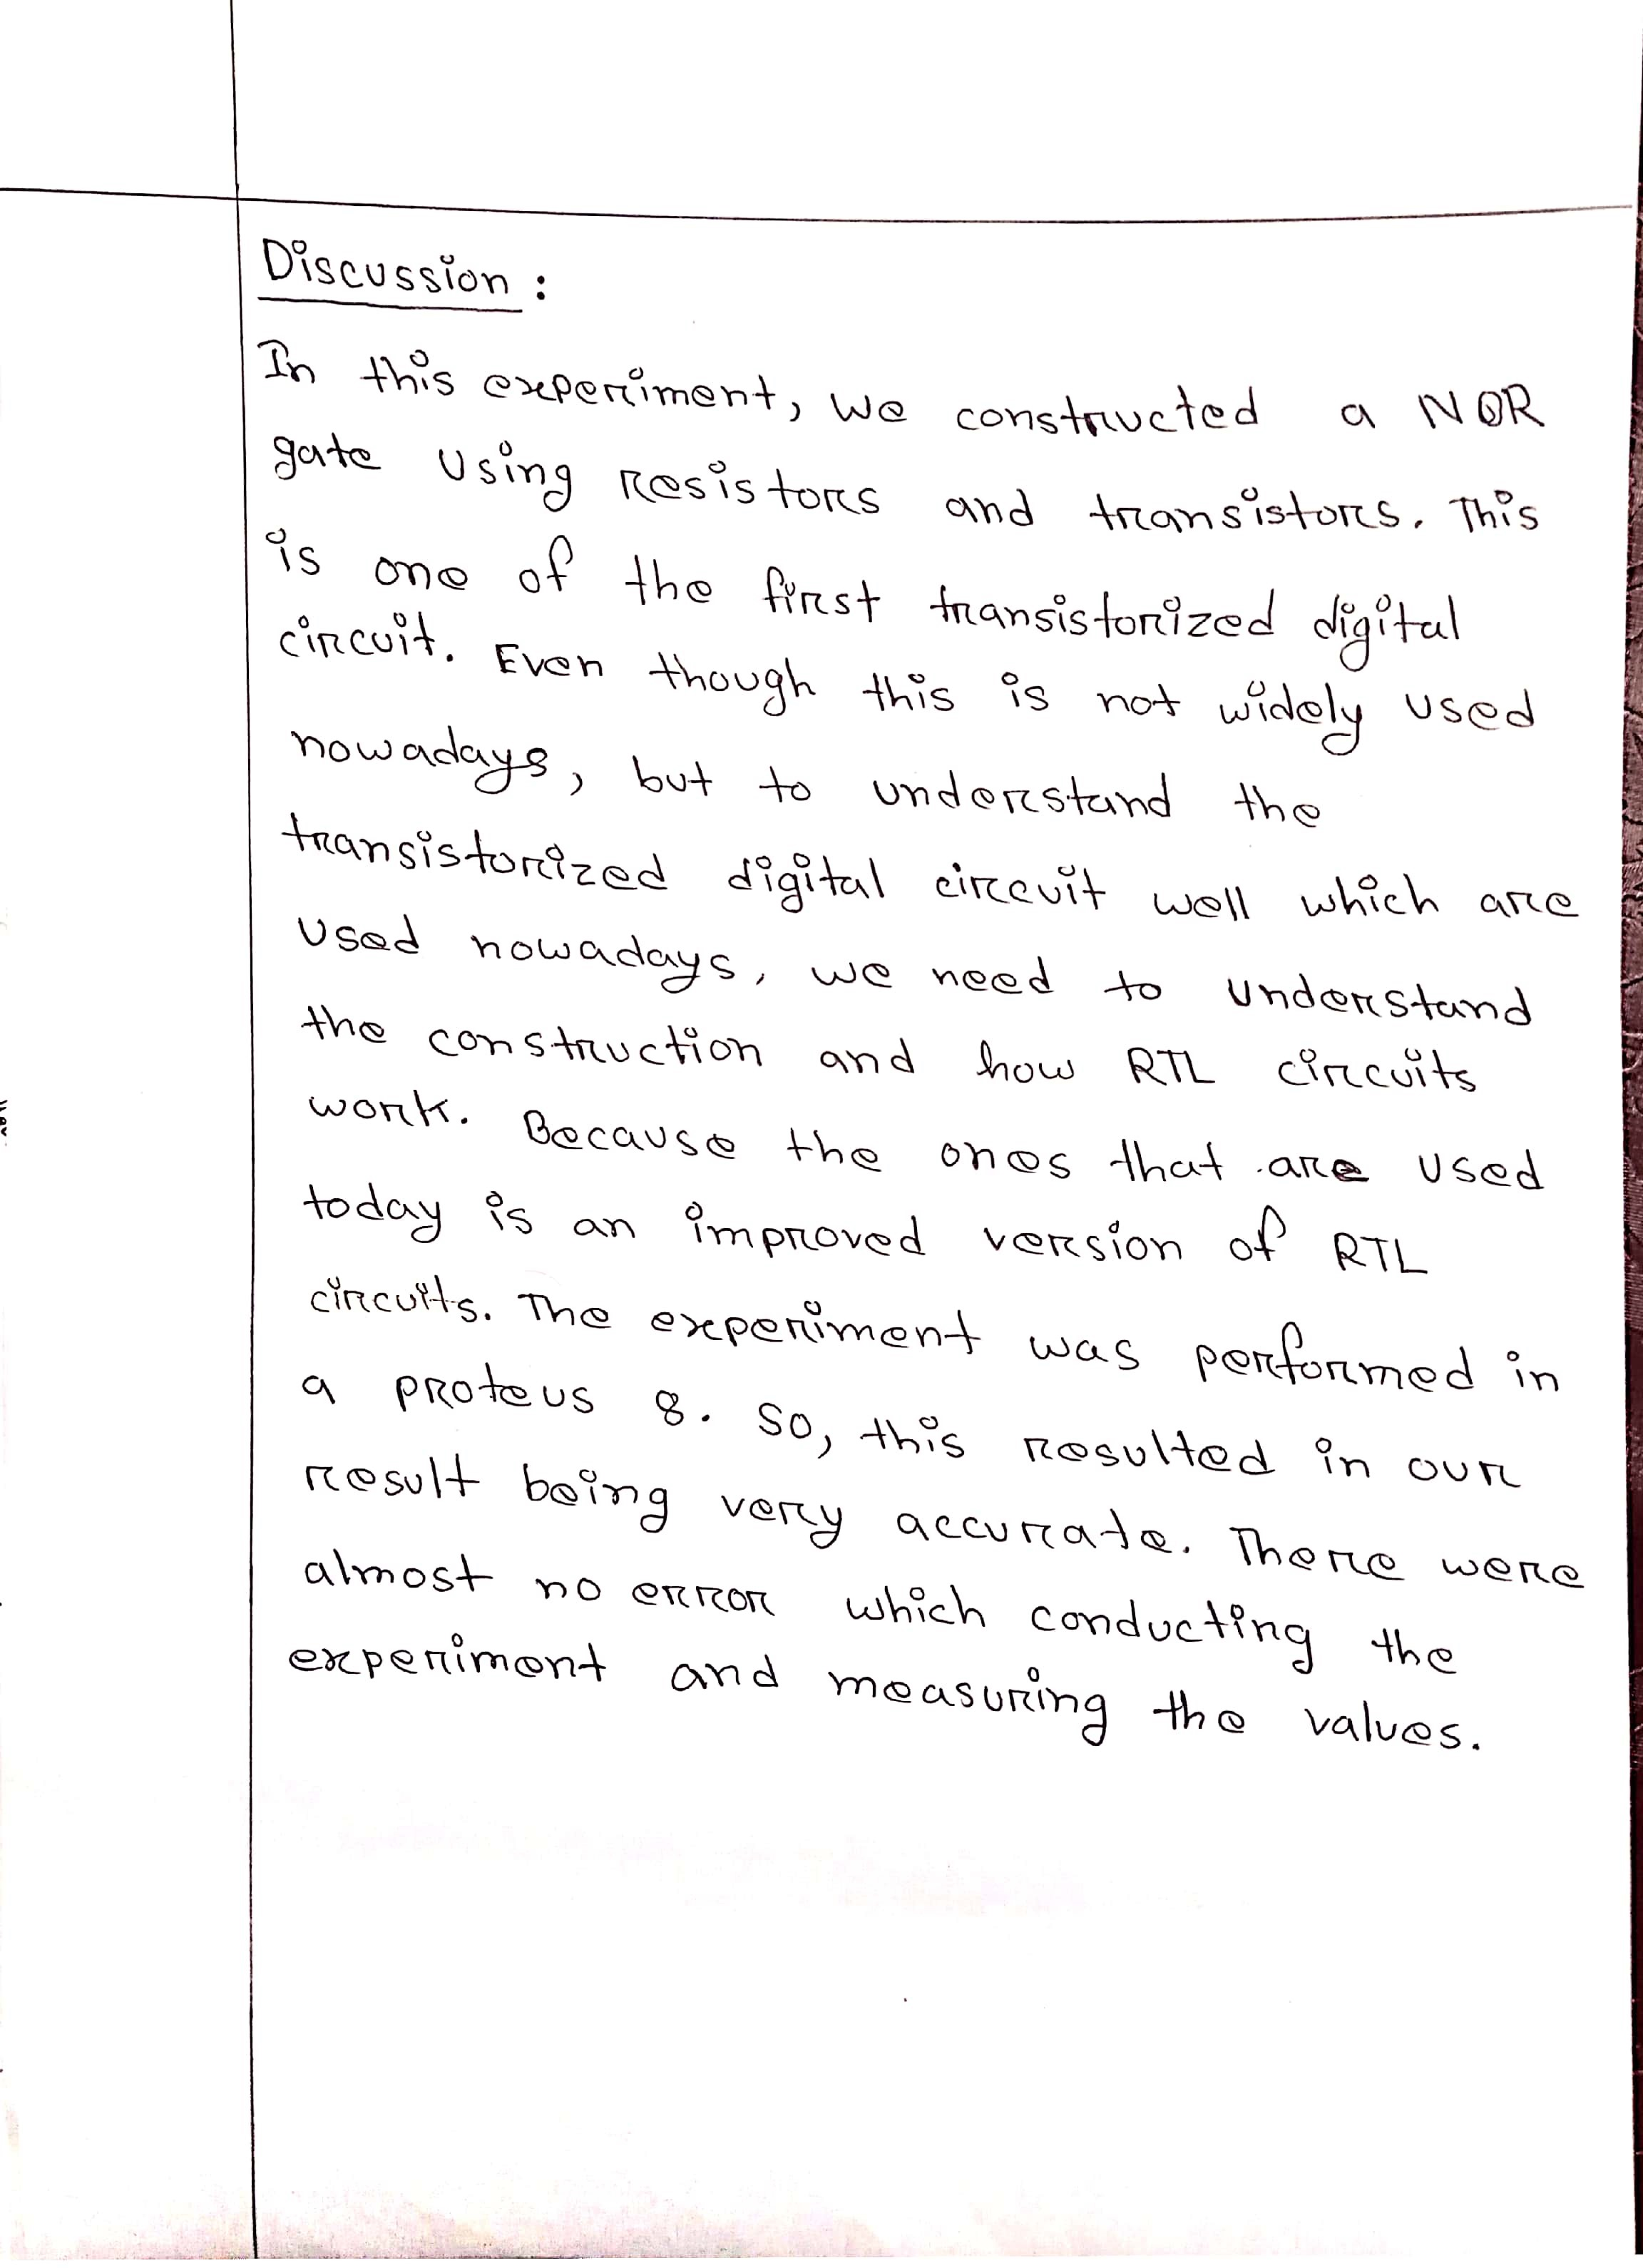 Discussion :
In this experiment, we constructed a NOR
gate using resistors and transistors. This
is one of the first transistorized digital
circuit. Even though this is not widely used
nowadays, but to understand the
transistorized digital circuit well which are
used nowadays, we need to understand
the construction and how RTL circuits
work. Because the ones that are used
today is an improved version of RTL
circuits. The experiment was performed in
a proteus 8. So, this resulted in our
result being very accurate. There were
almost no error which conducting the
experiment and measuring the values.